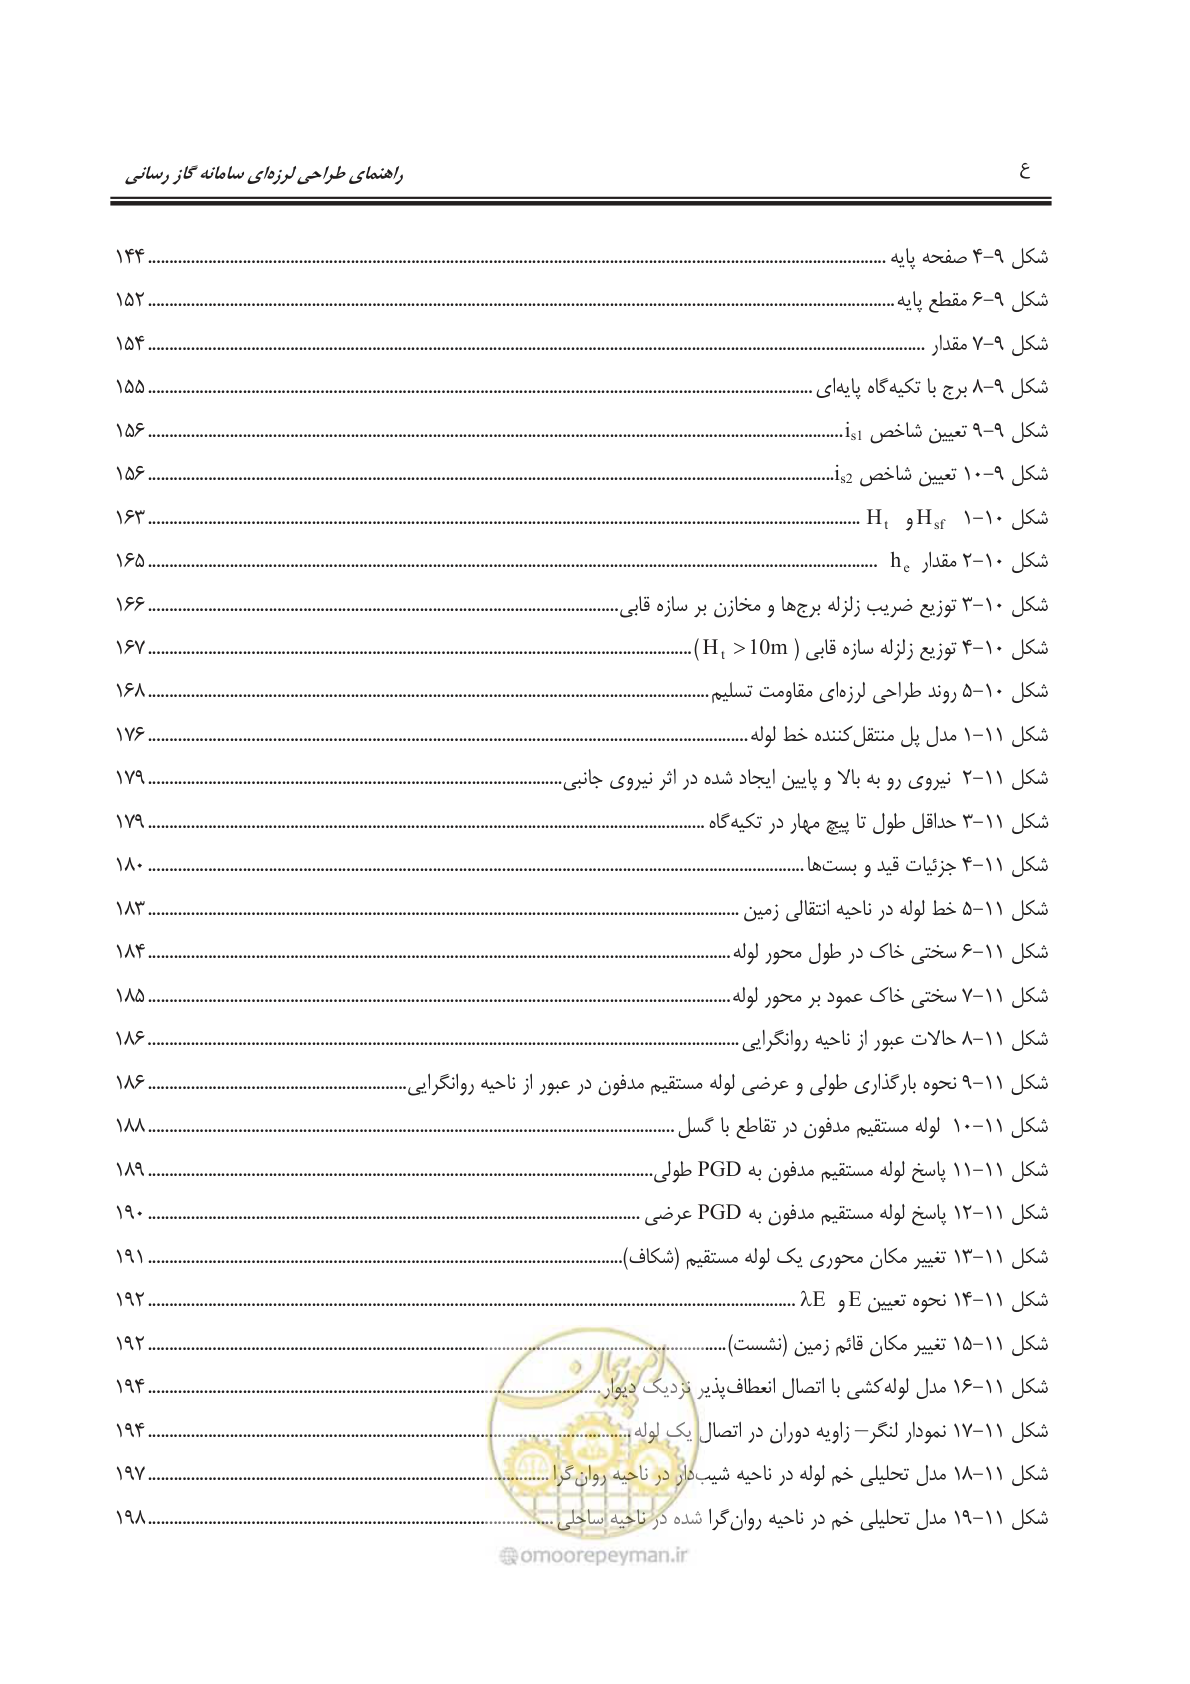 ع
راهنمای طراحی لرزه‌ای سامانه گاز رسانی
شکل ۹-۴ صفحه پایه ........ ۱۴۴
شکل ۹-۶ مقطع پایه ........ ۱۵۲
شکل ۹-۷ مقدار ........ ۱۵۴
شکل ۹-۸ برج با تکیه‌گاه پایه‌ای ........ ۱۵۵
شکل ۹-۹ تعیین شاخص is1 ........ ۱۵۶
شکل ۹-۱۰ تعیین شاخص is2 ........ ۱۵۶
شکل ۱۰-۱ Hsf و Ht ........ ۱۶۳
شکل ۱۰-۲ مقدار he ........ ۱۶۵
شکل ۱۰-۳ توزیع ضریب زلزله برج‌ها و مخازن بر سازه قابی ........ ۱۶۶
شکل ۱۰-۴ توزیع زلزله سازه قابی (Ht >10m) ........ ۱۶۷
شکل ۱۰-۵ روند طراحی لرزه‌ای مقاومت تسلیم ........ ۱۶۸
شکل ۱۱-۱ مدل پل منتقل‌کننده خط لوله ........ ۱۷۶
شکل ۱۱-۲ نیروی رو به بالا و پایین ایجاد شده در اثر نیروی جانبی ........ ۱۷۹
شکل ۱۱-۳ حداقل طول تا پیچ مهار در تکیه‌گاه ........ ۱۷۹
شکل ۱۱-۴ جزئیات قید و بست‌ها ........ ۱۸۰
شکل ۱۱-۵ خط لوله در ناحیه انتقالی زمین ........ ۱۸۳
شکل ۱۱-۶ سختی خاک در طول محور لوله ........ ۱۸۴
شکل ۱۱-۷ سختی خاک عمود بر محور لوله ........ ۱۸۵
شکل ۱۱-۸ حالات عبور از ناحیه روانگرایی ........ ۱۸۶
شکل ۱۱-۹ نحوه بارگذاری طولی و عرضی لوله مستقیم مدفون در عبور از ناحیه روانگرایی ........ ۱۸۶
شکل ۱۱-۱۰ لوله مستقیم مدفون در تقاطع با گسل ........ ۱۸۸
شکل ۱۱-۱۱ پاسخ لوله مستقیم مدفون به PGD طولی ........ ۱۸۹
شکل ۱۱-۱۲ پاسخ لوله مستقیم مدفون به PGD عرضی ........ ۱۹۰
شکل ۱۱-۱۳ تغییر مکان محوری یک لوله مستقیم (شکاف) ........ ۱۹۱
شکل ۱۱-۱۴ نحوه تعیین E و λE ........ ۱۹۲
شکل ۱۱-۱۵ تغییر مکان قائم زمین (نشست) ........ ۱۹۲
شکل ۱۱-۱۶ مدل لوله‌کشی با اتصال انعطاف‌پذیر نزدیک دیوار ........ ۱۹۴
شکل ۱۱-۱۷ نمودار لنگر– زاویه دوران در اتصال یک لوله ........ ۱۹۴
شکل ۱۱-۱۸ مدل تحلیلی خم لوله در ناحیه شیب‌دار در ناحیه روان‌گرا ........ ۱۹۷
شکل ۱۱-۱۹ مدل تحلیلی خم در ناحیه روان‌گرا شده در ناحیه ساحلی ........ ۱۹۸
امور پیمان
@omoorepeyman.ir